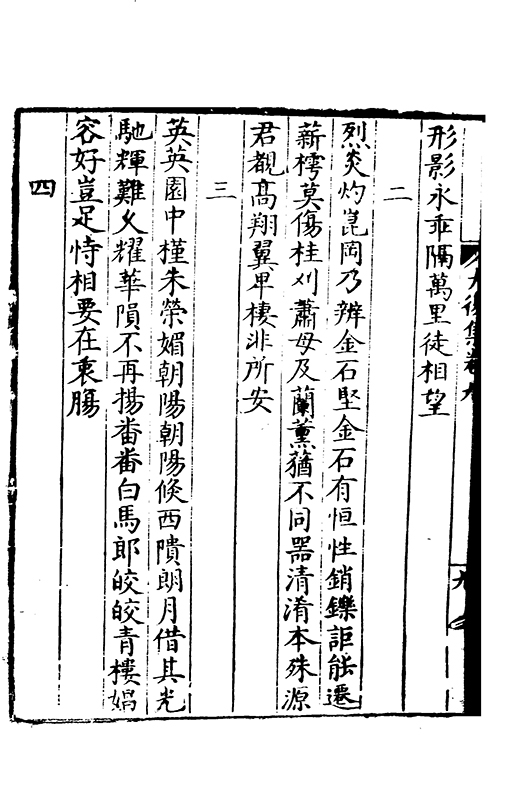 形影永乖隔萬里徒相望
二
烈炎灼崑岡乃辨金石堅金石有恒性銷鑠詎能遷
薪樗莫傷桂刈蕭毋及蘭薰蕕不同器清淆本殊源
君覩高翔翼卑棲非所安
三
英英園中槿朱榮媚朝陽朝陽倏西隤朗月借其光
馳輝難久耀華隕不再揚畨畨白馬郎皎皎青樓娼
容好豈足恃相要在衷腸
四